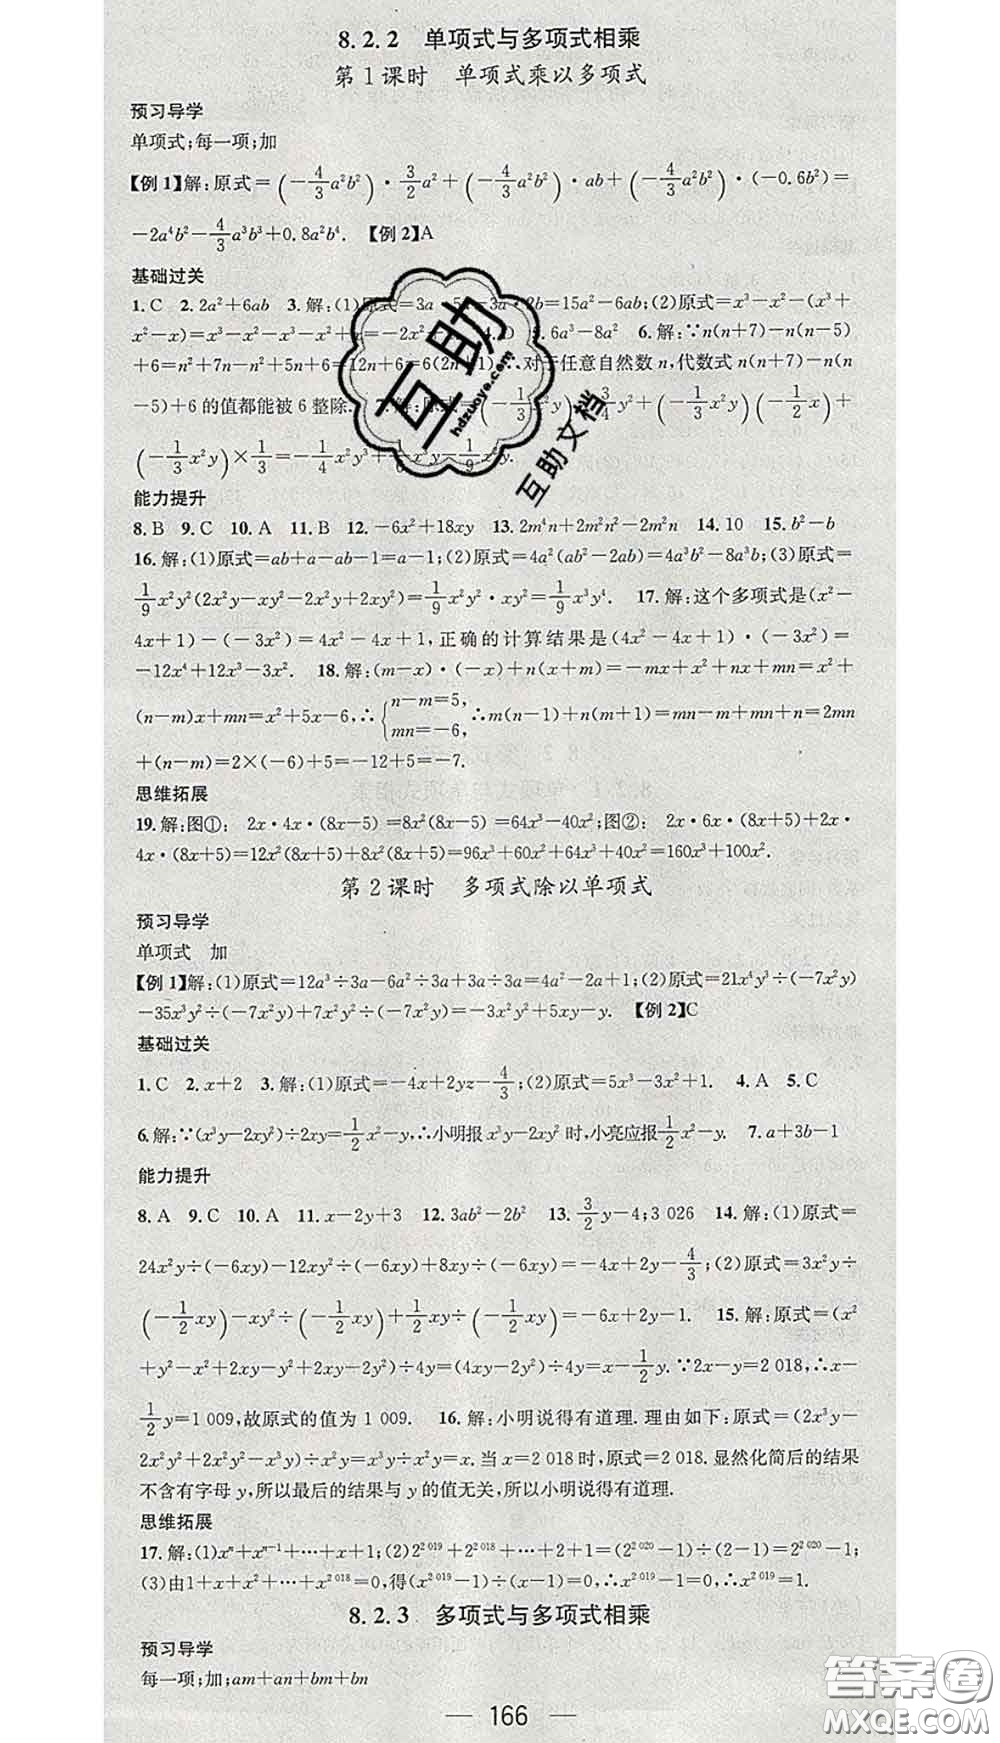 8.2.2 单项式与多项式相乘
第1课时 单项式乘以多项式
预习导学
单项式;每一项;加
【例1】解:原式=(-4/3a²b²)·3/2a²+(-4/3a²b²)·ab+(-4/3a²b²)·(-0.6b²)=
-2a⁴b²-4/3a³b³+0.8a²b⁴. 【例2】A
基础过关
1.C 2.2a²+6ab 3.解:(1)原式=3a·5a-3a·2b=15a²-6ab;(2)原式=x³-x²-(x³+
x²-x)=x³-x²-x³-x²+x=-2x²+x. 4.D 5.6a³-8a² 6.解:∵n(n+7)-n(n-5)
+6=n²+7n-n²+5n+6=12n+6=6(2n+1),∴对于任意自然数n,代数式n(n+7)-n(n
-5)+6的值都能被6整除. 7.解:原式=(-1/3x²y)·3/4y²+(-1/3x²y)(-1/2x)+
(-1/3x²y)×1/3=-1/4x²y³+1/6x³y-1/9x²y.
能力提升
8.B 9.C 10.A 11.B 12.-6x²+18xy 13.2m⁴n+2m²n²-2m²n 14.10 15.b²-b
16.解:(1)原式=ab+a-ab-1=a-1;(2)原式=4a²(ab²-2ab)=4a³b²-8a³b;(3)原式=
1/9x²y²(2x²y-xy²-2x²y+2xy²)=1/9x²y²·xy²=1/9x³y⁴. 17.解:这个多项式是(x²-
4x+1)-(-3x²)=4x²-4x+1,正确的计算结果是(4x²-4x+1)·(-3x²)=
-12x⁴+12x³-3x². 18.解:(m-x)·(-x)+n(x+m)=-mx+x²+nx+mn=x²+
(n-m)x+mn=x²+5x-6,∴{n-m=5,mn=-6 ∴m(n-1)+n(m+1)=mn-m+mn+n=2mn
+(n-m)=2×(-6)+5=-12+5=-7.
思维拓展
19.解:图①: 2x·4x·(8x-5)=8x²(8x-5)=64x³-40x²;图②: 2x·6x·(8x+5)+2x·
4x·(8x+5)=12x²(8x+5)+8x²(8x+5)=96x³+60x²+64x³+40x²=160x³+100x².
第2课时 多项式除以单项式
预习导学
单项式 加
【例1】解:(1)原式=12a³÷3a-6a²÷3a+3a÷3a=4a²-2a+1;(2)原式=21x⁴y³÷(-7x²y)
-35x³y²÷(-7x²y)+7x²y²÷(-7x²y)=-3x²y²+5xy-y. 【例2】C
基础过关
1.C 2.x+2 3.解:(1)原式=-4x+2yz-4/3;(2)原式=5x³-3x²+1. 4.A 5.C
6.解:∵(x³y-2xy²)÷2xy=1/2x²-y,∴小明报x³y-2xy²时,小亮应报1/2x²-y. 7.a+3b-1
能力提升
8.A 9.C 10.A 11.x-2y+3 12.3ab²-2b² 13.3/2y-4;3 026 14.解:(1)原式=
24x²y÷(-6xy)-12xy²÷(-6xy)+8xy÷(-6xy)=-4x+2y-4/3;(2)原式=3x²y÷
(-1/2xy)-xy²÷(-1/2xy)+1/2xy÷(-1/2xy)=-6x+2y-1. 15.解:原式=(x²
+y²-x²+2xy-y²+2xy-2y²)÷4y=(4xy-2y²)÷4y=x-1/2y.∵2x-y=2 018,∴x-
1/2y=1 009,故原式的值为1 009. 16.解:小明说得有道理.理由如下:原式=(2x³y-
2x²y²+2x²y²-x³y)÷x²y=x³y÷x²y=x.当x=2 018时,原式=2 018.显然化简后的结果
不含有字母y,所以最后的结果与y的值无关,所以小明说得有道理.
思维拓展
17.解:(1)xⁿ+xⁿ⁻¹+…+x+1;(2)2²⁰¹⁹+2²⁰¹⁸+…+2+1=(2²⁰²⁰-1)÷(2-1)=2²⁰²⁰-1;
(3)由1+x+x²+…+x²⁰¹⁸=0,得(x²⁰¹⁹-1)÷(x-1)=0,∴x²⁰¹⁹-1=0,∴x²⁰¹⁹=1.
8.2.3 多项式与多项式相乘
预习导学
每一项;加;am+an+bm+bn
166
互助
hdzuoye.com
互助文档
答案卷
MXQE.COM